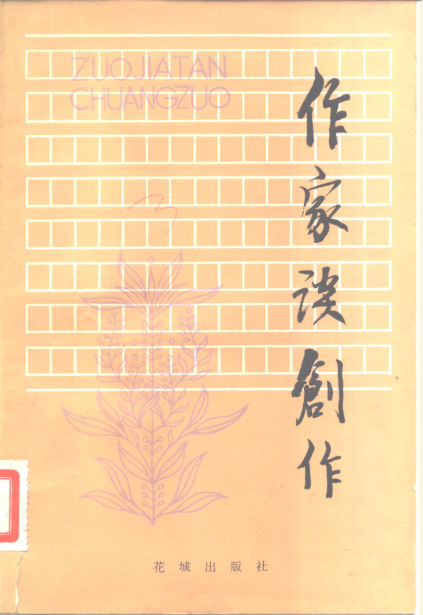 ZUOJIATAN
CHUANGZUO
作家谈創作
花城出版社